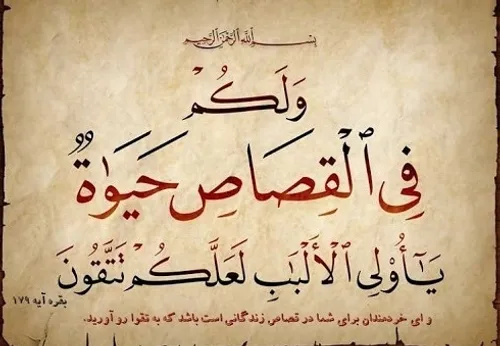 بسم الله الرحمن الرحیم
وَلَكُمْ
فِي ٱلْقِصَاصِ حَيَوٰةٌ
يَـٰٓأُو۟لِي ٱلْأَلْبَـٰبِ لَعَلَّكُمْ تَتَّقُونَ
بقره آیه ۱۷۹
و ای خردمندان برای شما در قصاص زندگانی است باشد که به تقوا رو آورید.